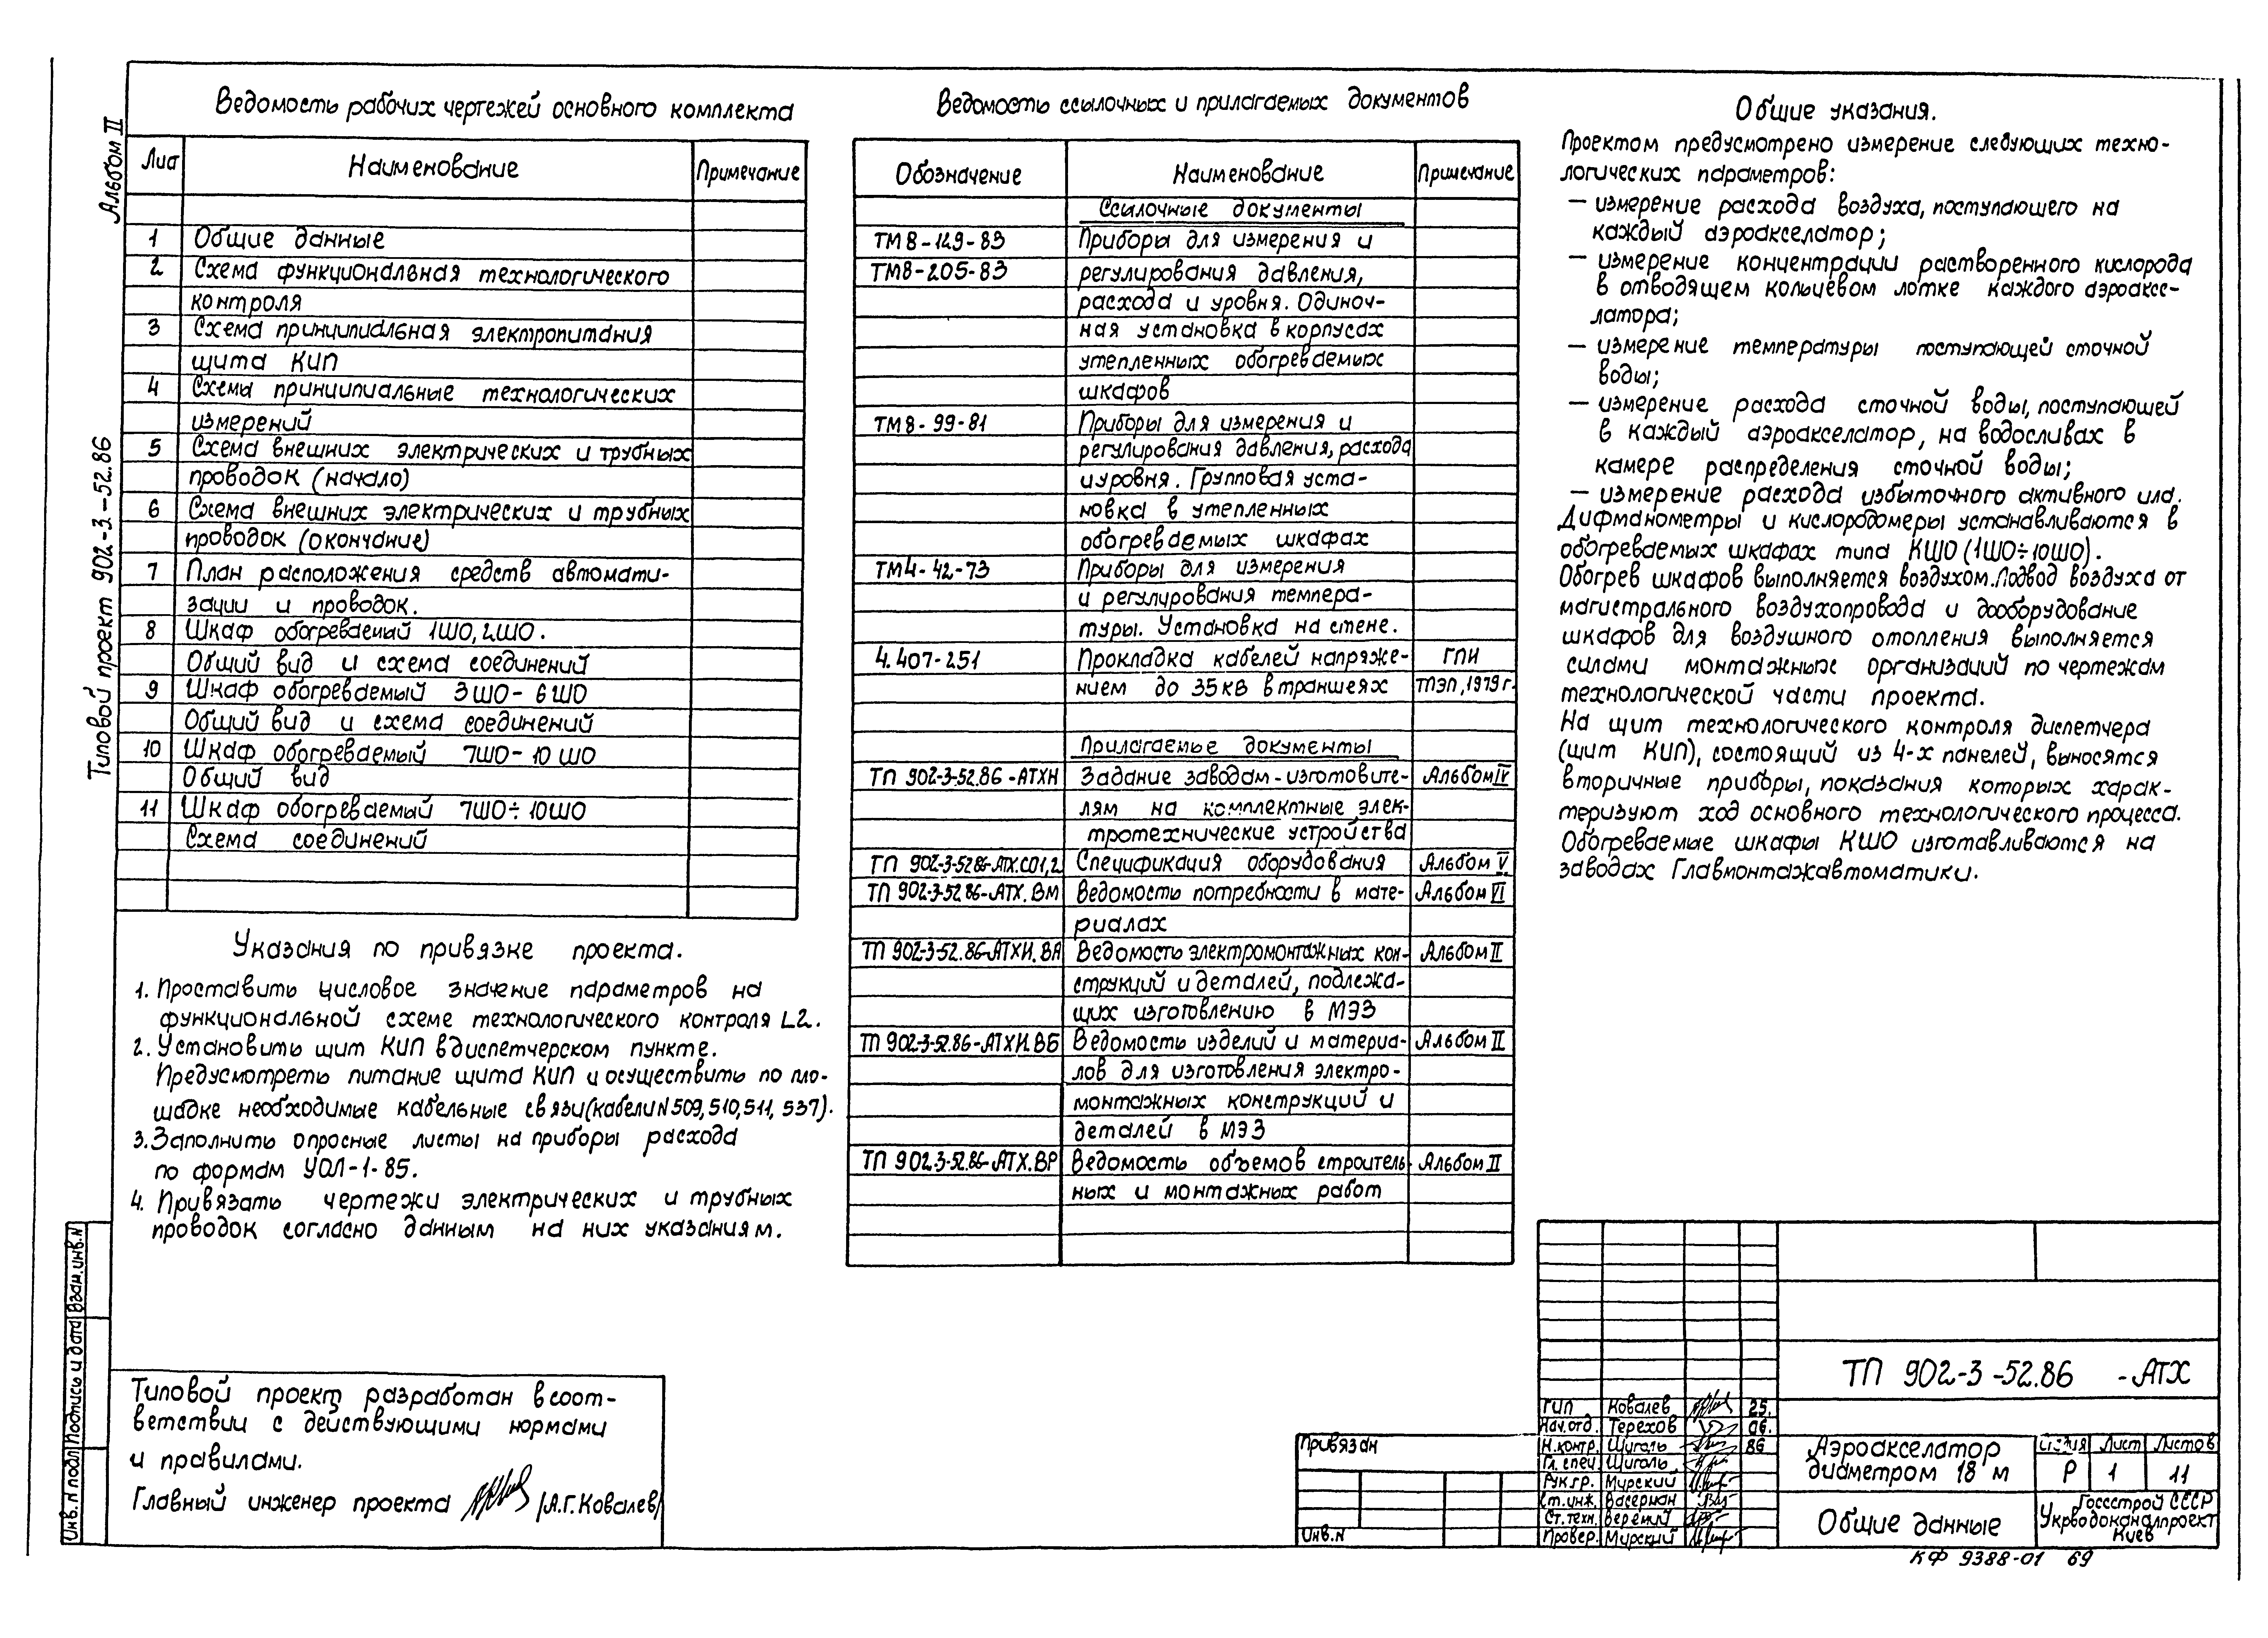 Альбом II
Типовой проект 902-3-52.86
Ведомость рабочих чертежей основного комплекта
Лист Наименование Примечание
1 Общие данные
2 Схема функциональная технологического
контроля
3 Схема принципиальная электропитания
щита КИП
4 Схемы принципиальные технологических
измерений
5 Схема внешних электрических и трубных
проводок (начало)
6 Схема внешних электрических и трубных
проводок (окончание)
7 План расположения средств автомати-
зации и проводок.
8 Шкаф обогреваемый 1ШО, 2ШО.
Общий вид и схема соединений
9 Шкаф обогреваемый 3ШО- 6ШО
Общий вид и схема соединений
10 Шкаф обогреваемый 7ШО- 10ШО
Общий вид
11 Шкаф обогреваемый 7ШО÷10ШО
Схема соединений
Указания по привязке проекта.
1. Проставить числовое значение параметров на
функциональной схеме технологического контроля L2.
2. Установить щит КИП в диспетчерском пункте.
Предусмотреть питание щита КИП и осуществить по пло-
щадке необходимые кабельные связи (кабели N 509, 510, 511, 537).
3. Заполнить опросные листы на приборы расхода
по формам УОЛ-1-85.
4. Привязать чертежи электрических и трубных
проводок согласно данным на них указаниям.
Типовой проект разработан в соот-
ветствии с действующими нормами
и правилами.
Главный инженер проекта /А.Г.Ковалев/
Ведомость ссылочных и прилагаемых документов
Обозначение Наименование Примечание
Ссылочные документы
ТМ8-149-83 Приборы для измерения и
ТМ8-205-83 регулирования давления,
расхода и уровня. Одиноч-
ная установка в корпусах
утепленных обогреваемых
шкафов
ТМ8-99-81 Приборы для измерения и
регулирования давления, расхода
и уровня. Групповая уста-
новка в утепленных
обогреваемых шкафах
ТМ4-42-73 Приборы для измерения
и регулирования темпера-
туры. Установка на стене.
4.407-251 Прокладка кабелей напряже- ГПИ
нием до 35кВ в траншеях ТПЭП, 1979 г.
Прилагаемые документы
ТП 902-3-52.86 -АТХН Задание заводам-изготовите- Альбом IV
лям на комплектные элек-
тротехнические устройства
ТП 902-3-52.86-АТХ.СО1,2 Спецификация оборудования Альбом V
ТП 902-3-52.86-АТХ.ВМ Ведомость потребности в мате- Альбом VI
риалах
ТП 902-3-52.86-АТХИ.ВА Ведомость электромонтажных кон- Альбом II
струкций и деталей, подлежа-
щих изготовлению в МЭЗ
ТП 902-3-52.86-АТХИ.ВБ Ведомость изделий и материа- Альбом II
лов для изготовления электро-
монтажных конструкций и
деталей в МЭЗ
ТП 902-3-52.86-АТХ.ВР Ведомость объемов строитель- Альбом II
ных и монтажных работ
Общие указания.
Проектом предусмотрено измерение следующих техно-
логических параметров:
— измерение расхода воздуха, поступающего на
каждый аэроакселатор;
— измерение концентрации растворенного кислорода
в отводящем кольцевом лотке каждого аэроаксе-
латора;
— измерение температуры поступающей сточной
воды;
— измерение расхода сточной воды, поступающей
в каждый аэроакселатор, на водосливах в
камере распределения сточной воды;
— измерение расхода избыточного активного ила.
Дифманометры и кислородомеры устанавливаются в
обогреваемых шкафах типа КШО (1ШО÷10ШО).
Обогрев шкафов выполняется воздухом. Подвод воздуха от
магистрального воздухопровода и дооборудование
шкафов для воздушного отопления выполняется
силами монтажных организаций по чертежам
технологической части проекта.
На щит технологического контроля диспетчера
(щит КИП), состоящий из 4-х панелей, выносятся
вторичные приборы, показания которых харак-
теризуют ход основного технологического процесса.
Обогреваемые шкафы КШО изготавливаются на
заводах Главмонтажавтоматики.
Взам.инв.N
Подпись и дата
Инв. N подл
Привязан
Инв.N
ТП 902-3-52.86 -АТХ
ГИП Ковалев 25.
Нач.отд. Терехов 06.
Н.контр. Щиголь 86
Гл. спец Щиголь
Рук.гр. Мурский
Ст.инж. Васерман
Ст.техн.
Провер. Мурский
Аэроакселатор
диаметром 18 м
Стадия Лист Листов
Р 1 11
Общие данные
Госстрой СССР
Укрводоканалпроект
Киев
КФ 9388-01 69